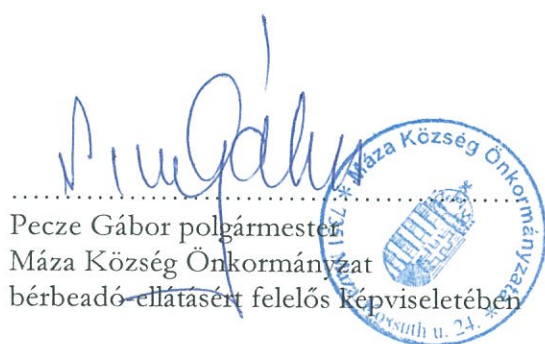 Pecze Gábor polgármester
Máza Község Önkormányzat
bérbeadó-ellátásért felelős képviseletében
* Máza Község Önkormányzata *
7351 Máza, Kossuth u. 24.